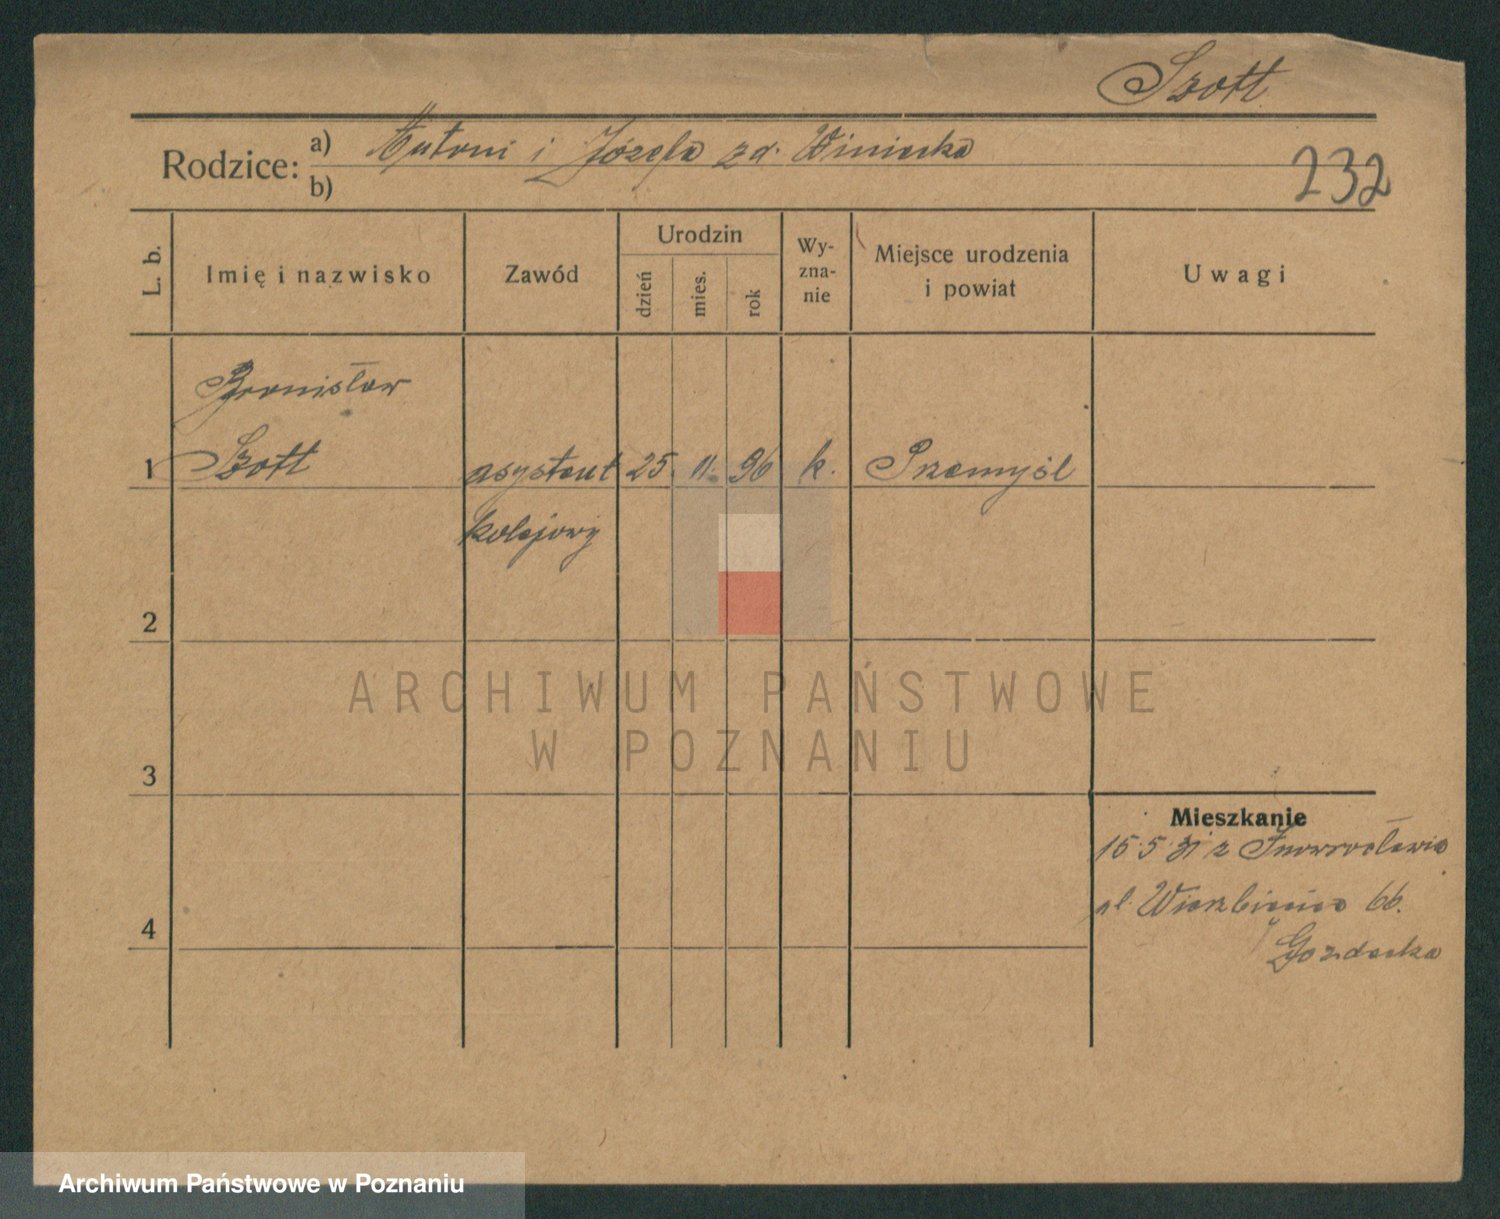 Szott
Rodzice: a) Antoni i Józefa z d. Winiecka
b)
232
L. b. Imię i nazwisko Zawód Urodzin dzień mies. rok Wyznanie Miejsce urodzenia i powiat Uwagi
Bronisław
1 Szott asystent 25. 11. 96 k. Przemyśl
kolejowy
2
ARCHIWUM PAŃSTWOWE
W POZNANIU
3
Mieszkanie
15.5.31 z Inowrocławia
ul. Wierzbięcice 66.
4
Gozdecka
Archiwum Państwowe w Poznaniu